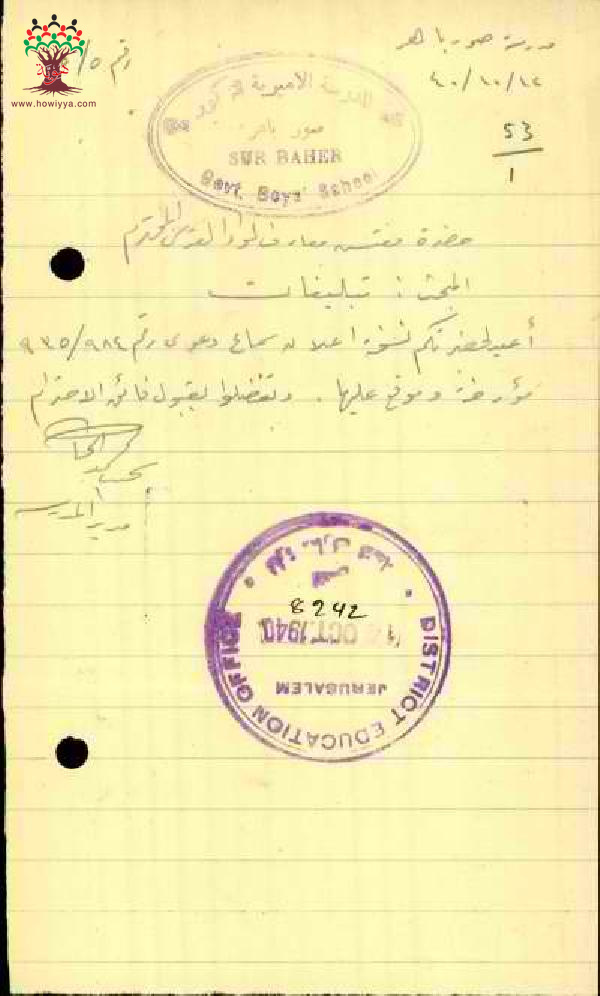 مدرسة صور باهر
٤٠/١٠/١٤
رقم
53
1
www.howiyya.com
المدرسة الاميرية للذكور
صور باهر
SUR BAHER
Govt. Boys' School
حضرة مفتش معارف لواء القدس المحترم
المبحث : تبليغات
أعيد لحضرتكم نسخة اعلان سماع دعوى رقم ٩٣٥/٩٨٤
مؤرخة وموقع عليها . وتفضلوا بقبول فائق الاحترام
مدير المدرسة
8242
OCT. 1940
JERUSALEM
DISTRICT EDUCATION OFFICE